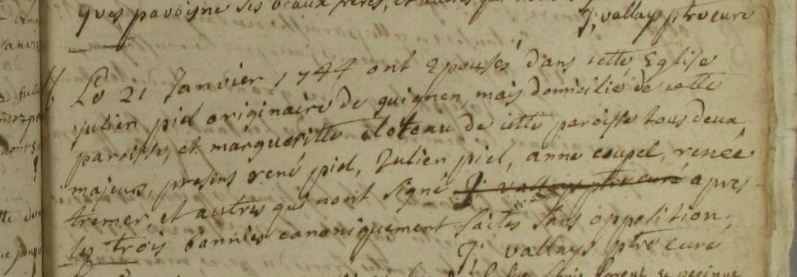 gues pavoisne ses beaux freres, et autres qui
J: vallays ptre curé
Le 21 Janvier 1744 ont Epousés dans cette Eglise
Julien piel originaire de guignen, mais domicilié de cette
paroisse, et margueritte cloteau de cette paroisse tous deux
majeurs, presens rené piel, Julien piel, anne coupel, renée
tremer, et autres qui n'ont signé J: vallays ptre curé apres
les trois bannies canoniquement faites sans opposition.
J: vallays ptre curé